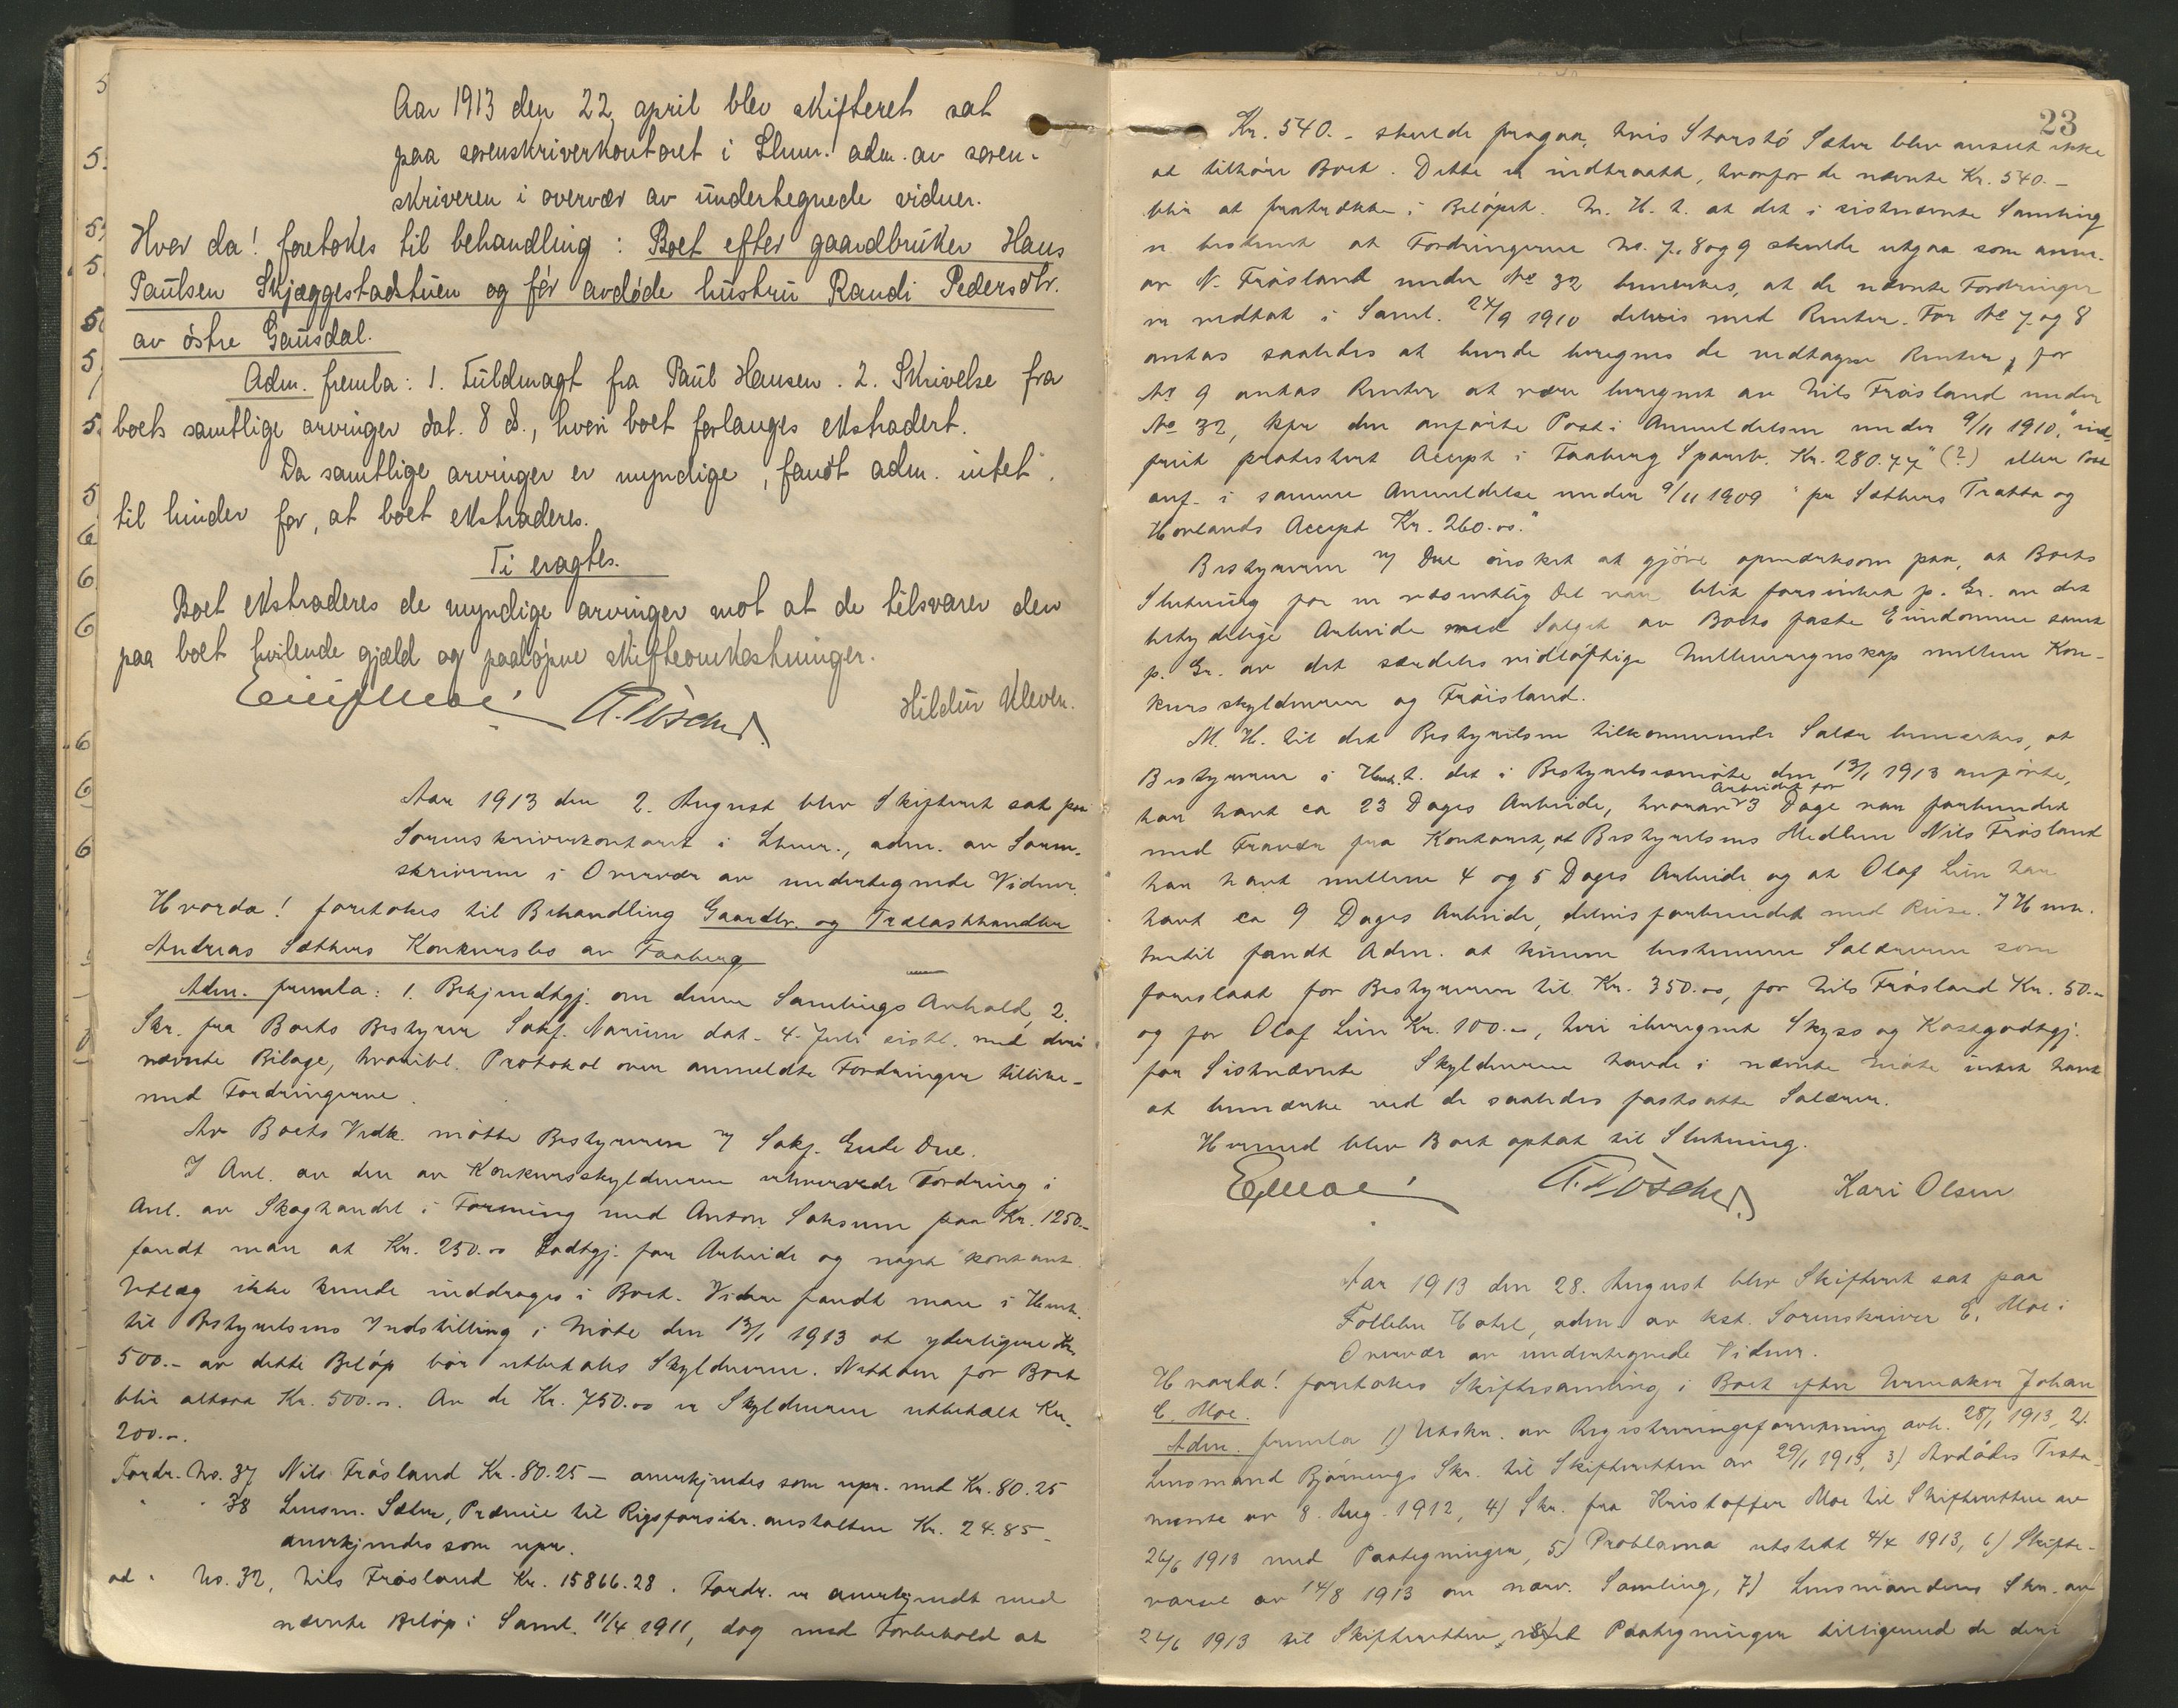 Aar 1913 den 22 april blev skifteret sat
paa sorenskriverkontoret i Lhmr. adm. av soren-
skriveren i overvær av undertegnede vidner.
Hvor da! foretokes til behandling: Boet efter gaardbruker Hans
Paulsen Skjæggestadstuen og før avdøde hustru Randi Pedersdtr.
av østre Gausdal.
Adm. fremla: 1. Fuldmagt fra Paul Hansen. 2. Skrivelse fra
boets samtlige arvinger dat. 8 ds., hvori boet forlanges ekstradert.
Da samtlige arvinger er myndige, fandt adm. intet
til hinder for, at boet ekstraderes.
Ti eragtes.
Boet ekstraderes de myndige arvinger mot at de tilsvarer den
paa boet hvilende gjæld og paaløpne skifteomkostninger.
Hildur Kleven.
Aar 1913 den 2. August blev Skifteret sat paa
Sorenskriverkontoret i Lhmr., adm. av Soren-
skriveren i Overvær av undertegnede Vidner.
Hvorda! foretokes til Behandling Gaardbr. og Trælasthandler
Andreas Sæthers Konkursbo av Faaberg
Adm. fremla: 1. Bekjendtgj. om denne Samlings Avhold, 2.
Skr. fra Boets Bestyrer Sakf. dat. 4. Juli sistl. med deri
nævnte Bilage, hvoribl. Protokol over anmeldte Fordringer tillike-
med Fordringerne.
Av Boets Vedk. møtte Bestyreren v/ Sakf. Gude Due.
I Anl. av den av Konkursskyldneren erhvervede Fordring i
Anl. av Skoghandel i Forening med Anton Saksum paa Kr. 1250.-
fandt man at Kr. 250.00 Godtgj. for Arbeide og noget kontant
Utlæg ikke kunde inddrages i Boet. Videre fandt man i Henh.
til Bestyrelsens Indstilling i Møte den 13/1 1913 at yderligere Kr.
500.- av dette Beløp bør utbetales Skyldneren. Nettoen for Boet
blir altsaa Kr. 500.00. Av de Kr. 750.00 er Skyldneren utbetalt Kr.
200.-.
Fordr. No. 37 Nils Frøsland Kr. 80.25 – anerkjendes som upr. med Kr. 80.25
" " 38 Lensm. Sæter, Præmie til Rigsforsikr.anstalten Kr. 24.85 –
anerkjendes som upr.
ad " No. 32, Nils Frøsland Kr. 15866.28. Fordr. er anerkjendt med
nævnte Beløp i Saml. 11/4 1911, dog med Forbehold at
23
Kr. 540.- skulde fragaa, hvis Storstø Sæter blev anset ikke
at tilhøre Boet. Dette er indtraadt, hvorfor de nævnte Kr. 540.-
blir at fratrække i Beløpet. M. H. t. at det i sistnævnte Samling
er bestemt at Fordringerne No. 7, 8 og 9 skulde utgaa som anm.
av N. Frøsland under No 32 bemerkes, at de nævnte Fordringer
er vedtat i Saml. 24/9 1910 delvis med Renter. For No 7 og 8
antas saaledes at burde beregnes de vedtagne Renter, for
No 9 antas Renter at være beregnet av Nils Frøsland under
No 32, kfr. den anførte Post i Anmeldelsen under 9/11 1910, "ind-
friet protestert Accept i Faaberg Sparb. Kr. 280.77" (?) eller Post
anf. i samme Anmeldelse under 9/11 1909 "pr Sæthers Tratta og
Hovlands Accept Kr. 260.00."
Bestyreren v/ Due ønsket at gjøre opmerksom paa, at Boets
Slutning for en væsentlig Del var blit forsinket p. Gr. av det
betydelige Arbeide med Salget av Boets faste Eiendomme samt
p. Gr. av det særdeles vidløftige Mellemregnskap mellem Kon-
kursskyldneren og Frøisland.
M. H. til det Bestyrelsen tilkommende Salær bemerkes, at
Bestyreren i Henh. t. det i Bestyrelsesmøte den 13/1 1913 anførte,
har havt ca 23 Dages Arbeide, hvorav Arbeidet for 3 Dage var forbundet
med Fravær fra Kontoret, at Bestyrelsens Medlem Nils Frøsland
har havt mellem 4 og 5 Dages Arbeide og at Olaf Lien har
havt ca 9 Dages Arbeide, delvis forbundet med Reise. I Hen-
hertil fandt Adm. at kunne bestemme Salærerne som
foreslaat for Bestyreren til Kr. 350.00, for Nils Frøsland Kr. 50.-
og for Olaf Lien Kr. 100.-, heri iberegnet Skyss og Kostgodtgj.
for Sistnævnte Skyldneren havde i nævnte Møte intet havt
at bemærke ved de saaledes fastsatte Salærer.
Hermed blev Boet optat til Slutning.
Kari Olsen
Aar 1913 den 28. August blev Skifteret sat paa
Follebu Hotel, adm. av kst. Sorenskriver E. Moe i
Overvær av undertegnede Vidner.
Hvorda! foretokes Skiftesamling i Boet efter Urmaker Johan
E. Moe.
Adm. fremla 1) Utskr. av Registreringsforretning avh. 28/1 1913, 2.
Lensmand Bjørnings Skr. til Skifteretten av 29/1 1913, 3) Avdødes Testa-
mente av 8. Aug. 1912, 4) Skr. fra Kristoffer Moe til Skifteretten av
26/6 1913 med Paategninger, 5) Proklama utstedt 4/4 1913, 6) Skifte-
varsel av 14/8 1913 om nærv. Samling, 7) Lensmandens Skr. av
26/6 1913 til Skifteretten, med Paategninger tilligemed de deri